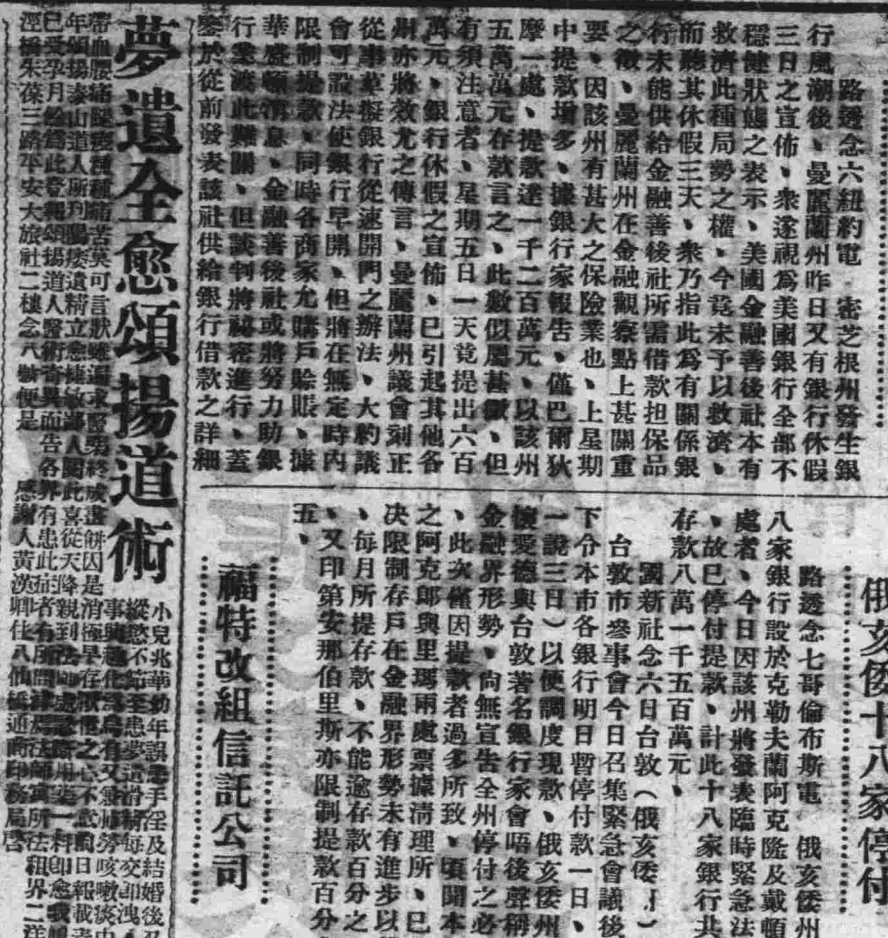 路透念六紐約電　密芝根州發生銀
行風潮後、曼麗蘭州昨日又有銀行休假
三日之宣佈、衆遂視爲美國銀行全部不
穩健狀態之表示、美國金融善後社本有
救濟此種局勢之權、今竟未予以救濟、
而聽其休假三天、衆乃指此爲有關係銀
行未能供給金融善後社所需借款担保品
之徵、曼麗蘭州在金融觀察點上甚關重
要、因該州有甚大之保險業也、上星期
中提款增多、據銀行家報告、僅巴爾狄
摩一處、提款達一千二百萬元、以該州
五萬萬元存款言之、此數似屬甚微、但
有須注意者、星期五日一天竟提出六百
萬元、銀行休假之宣佈、已引起其他各
州亦將效尤之傳言、曼麗蘭州議會刻正
從事草擬銀行從速開門之辦法、大約議
會可設法使銀行早開、但將在無定時內
限制提款、同時各商家允購戶賒賬、據
華盛頓消息、金融善後社或將努力助銀
行業渡此難關、但談判將祕密進行、蓋
鑒於從前發表該社供給銀行借款之詳細
俄亥倭十八家停付
路透念七哥倫布斯電　俄亥倭州
八家銀行設於克勒夫蘭阿克隆及戴頓
處者、今日因該州將發表臨時緊急法
、故已停付提款、計此十八家銀行共
存款八萬一千五百萬元、
國新社念六日台敦（俄亥倭）
台敦市參事會今日召集緊急會議後
下令本市各銀行明日暫停付款一日、
一說三日）以便調度現款、俄亥倭州
懷愛德與台敦著名銀行家會晤後聲稱
金融界形勢、尙無宣告全州停付之必
、此次僅因提款者過多所致、頃聞本
之阿克郎與里瑪兩處票據清理所、已
决限制存戶在金融界形勢未有進步以
、每月所提存款、不能逾存款百分之
、又印第安那伯里斯亦限制提款百分
五、
福特改組信託公司
夢遺全愈頌揚道術
小兒兆華幼年誤犯手淫及結婚後又
縱慾不節至患夢遺滑精每交卽洩
滯血腰痛腿痠種種痛苦莫可言狀雖遍求醫藥終成畫餅因是消極早存
已受孕月餘爲此登報頌揚道人醫術奇異而告各界有患此症者
涇橋朱葆三路平安大旅社二樓念八號便是　感謝人黃漢卿住八仙橋通商印務局啓